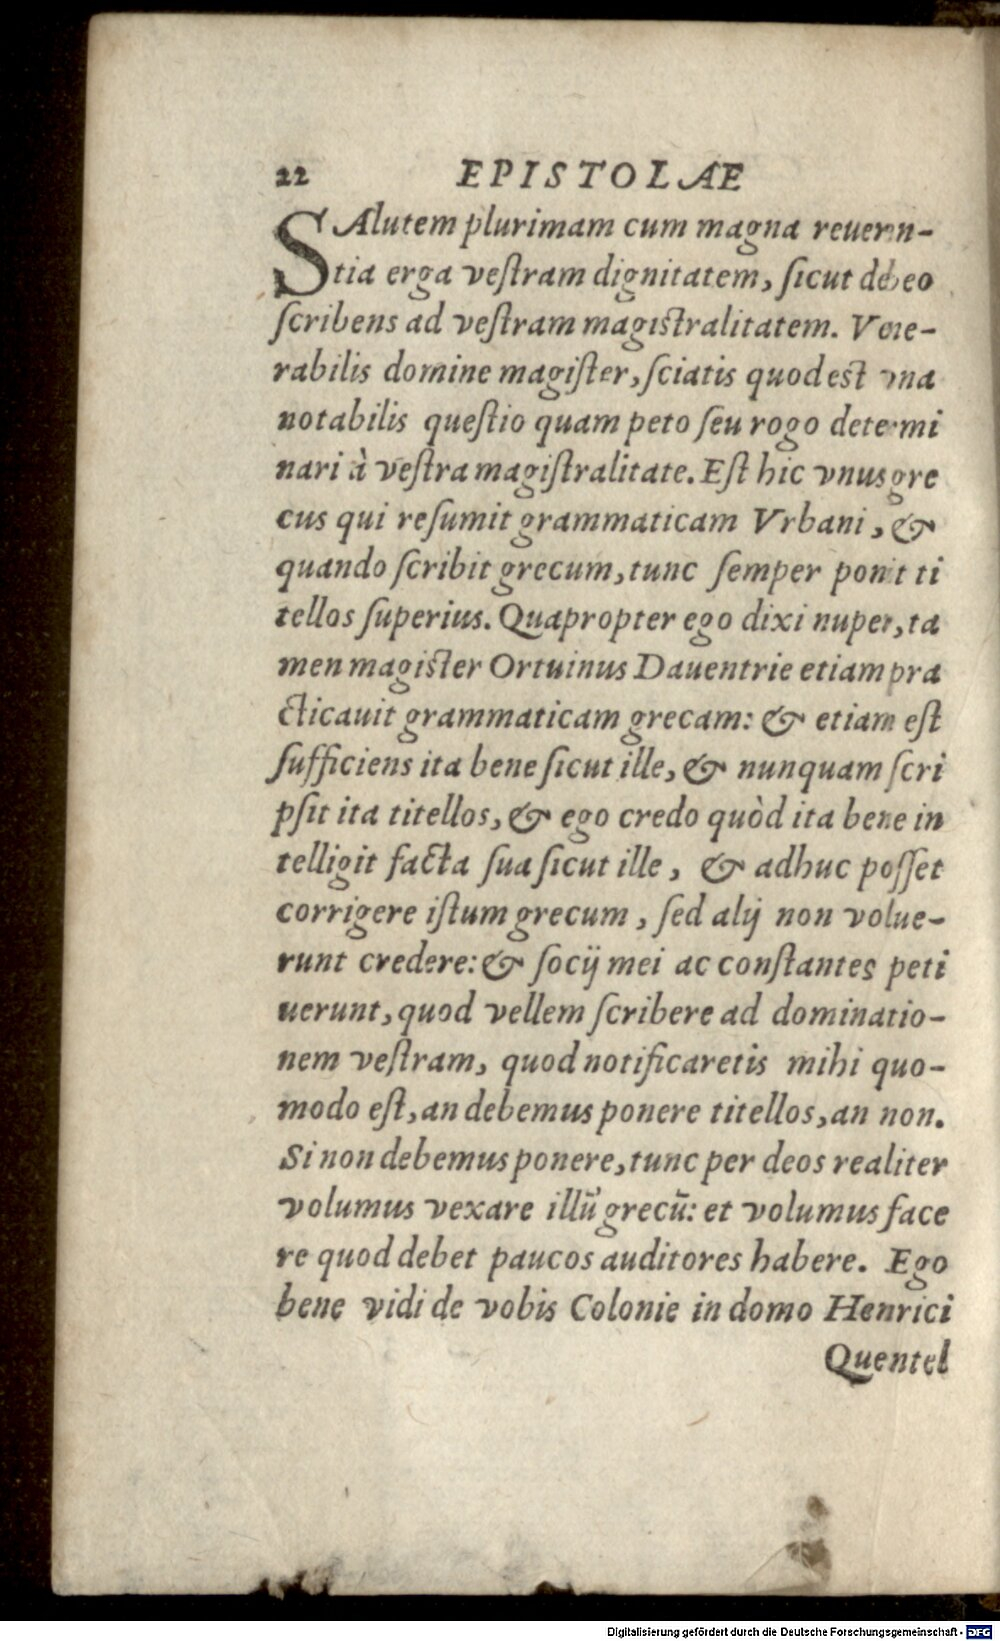 22 EPISTOLAE
SAlutem plurimam cum magna reueren-
tia erga veſtram dignitatem, ſicut debeo
ſcribens ad veſtram magiſtralitatem. Vene-
rabilis domine magiſter, ſciatis quod eſt vna
notabilis queſtio quam peto ſeu rogo determi
nari à veſtra magiſtralitate. Eſt hic vnus gre
cus qui reſumit grammaticam Vrbani, &
quando ſcribit grecum, tunc ſemper ponit ti
tellos ſuperius. Quapropter ego dixi nuper, ta
men magiſter Ortuinus Dauentrie etiam pra
cticauit grammaticam grecam: & etiam eſt
ſufficiens ita bene ſicut ille, & nunquam ſcri
pſit ita titellos, & ego credo quòd ita bene in
telligit facta ſua ſicut ille, & adhuc poſſet
corrigere iſtum grecum, ſed alij non volue-
runt credere: & ſocij mei ac conſtantes peti
uerunt, quod vellem ſcribere ad dominatio-
nem veſtram, quod notificaretis mihi quo-
modo eſt, an debemus ponere titellos, an non.
Si non debemus ponere, tunc per deos realiter
volumus vexare illū grecū: et volumus face
re quod debet paucos auditores habere. Ego
bene vidi de vobis Colonie in domo Henrici
Quentel
Digitalisierung gefördert durch die Deutsche Forschungsgemeinschaft - DFG